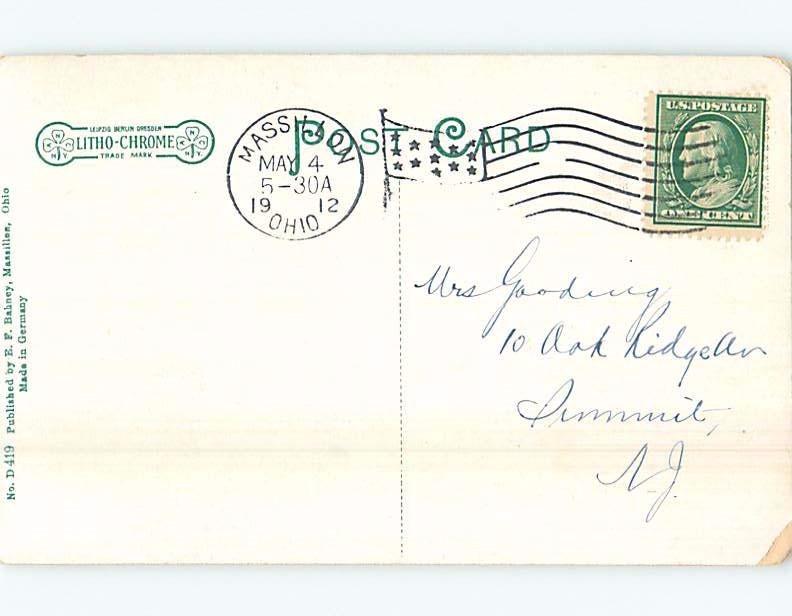 LEIPZIG BERLIN DRESDEN
LITHO-CHROME
TRADE MARK
POST CARD
MASSILLON
MAY 4
5-30A
1912
OHIO
U.S. POSTAGE
ONE CENT
Mrs Gooding
10 Oak Ridge Av
Summit,
N.J.
No. D 419 Published by E. F. Bahney, Massillon, Ohio
Made in Germany